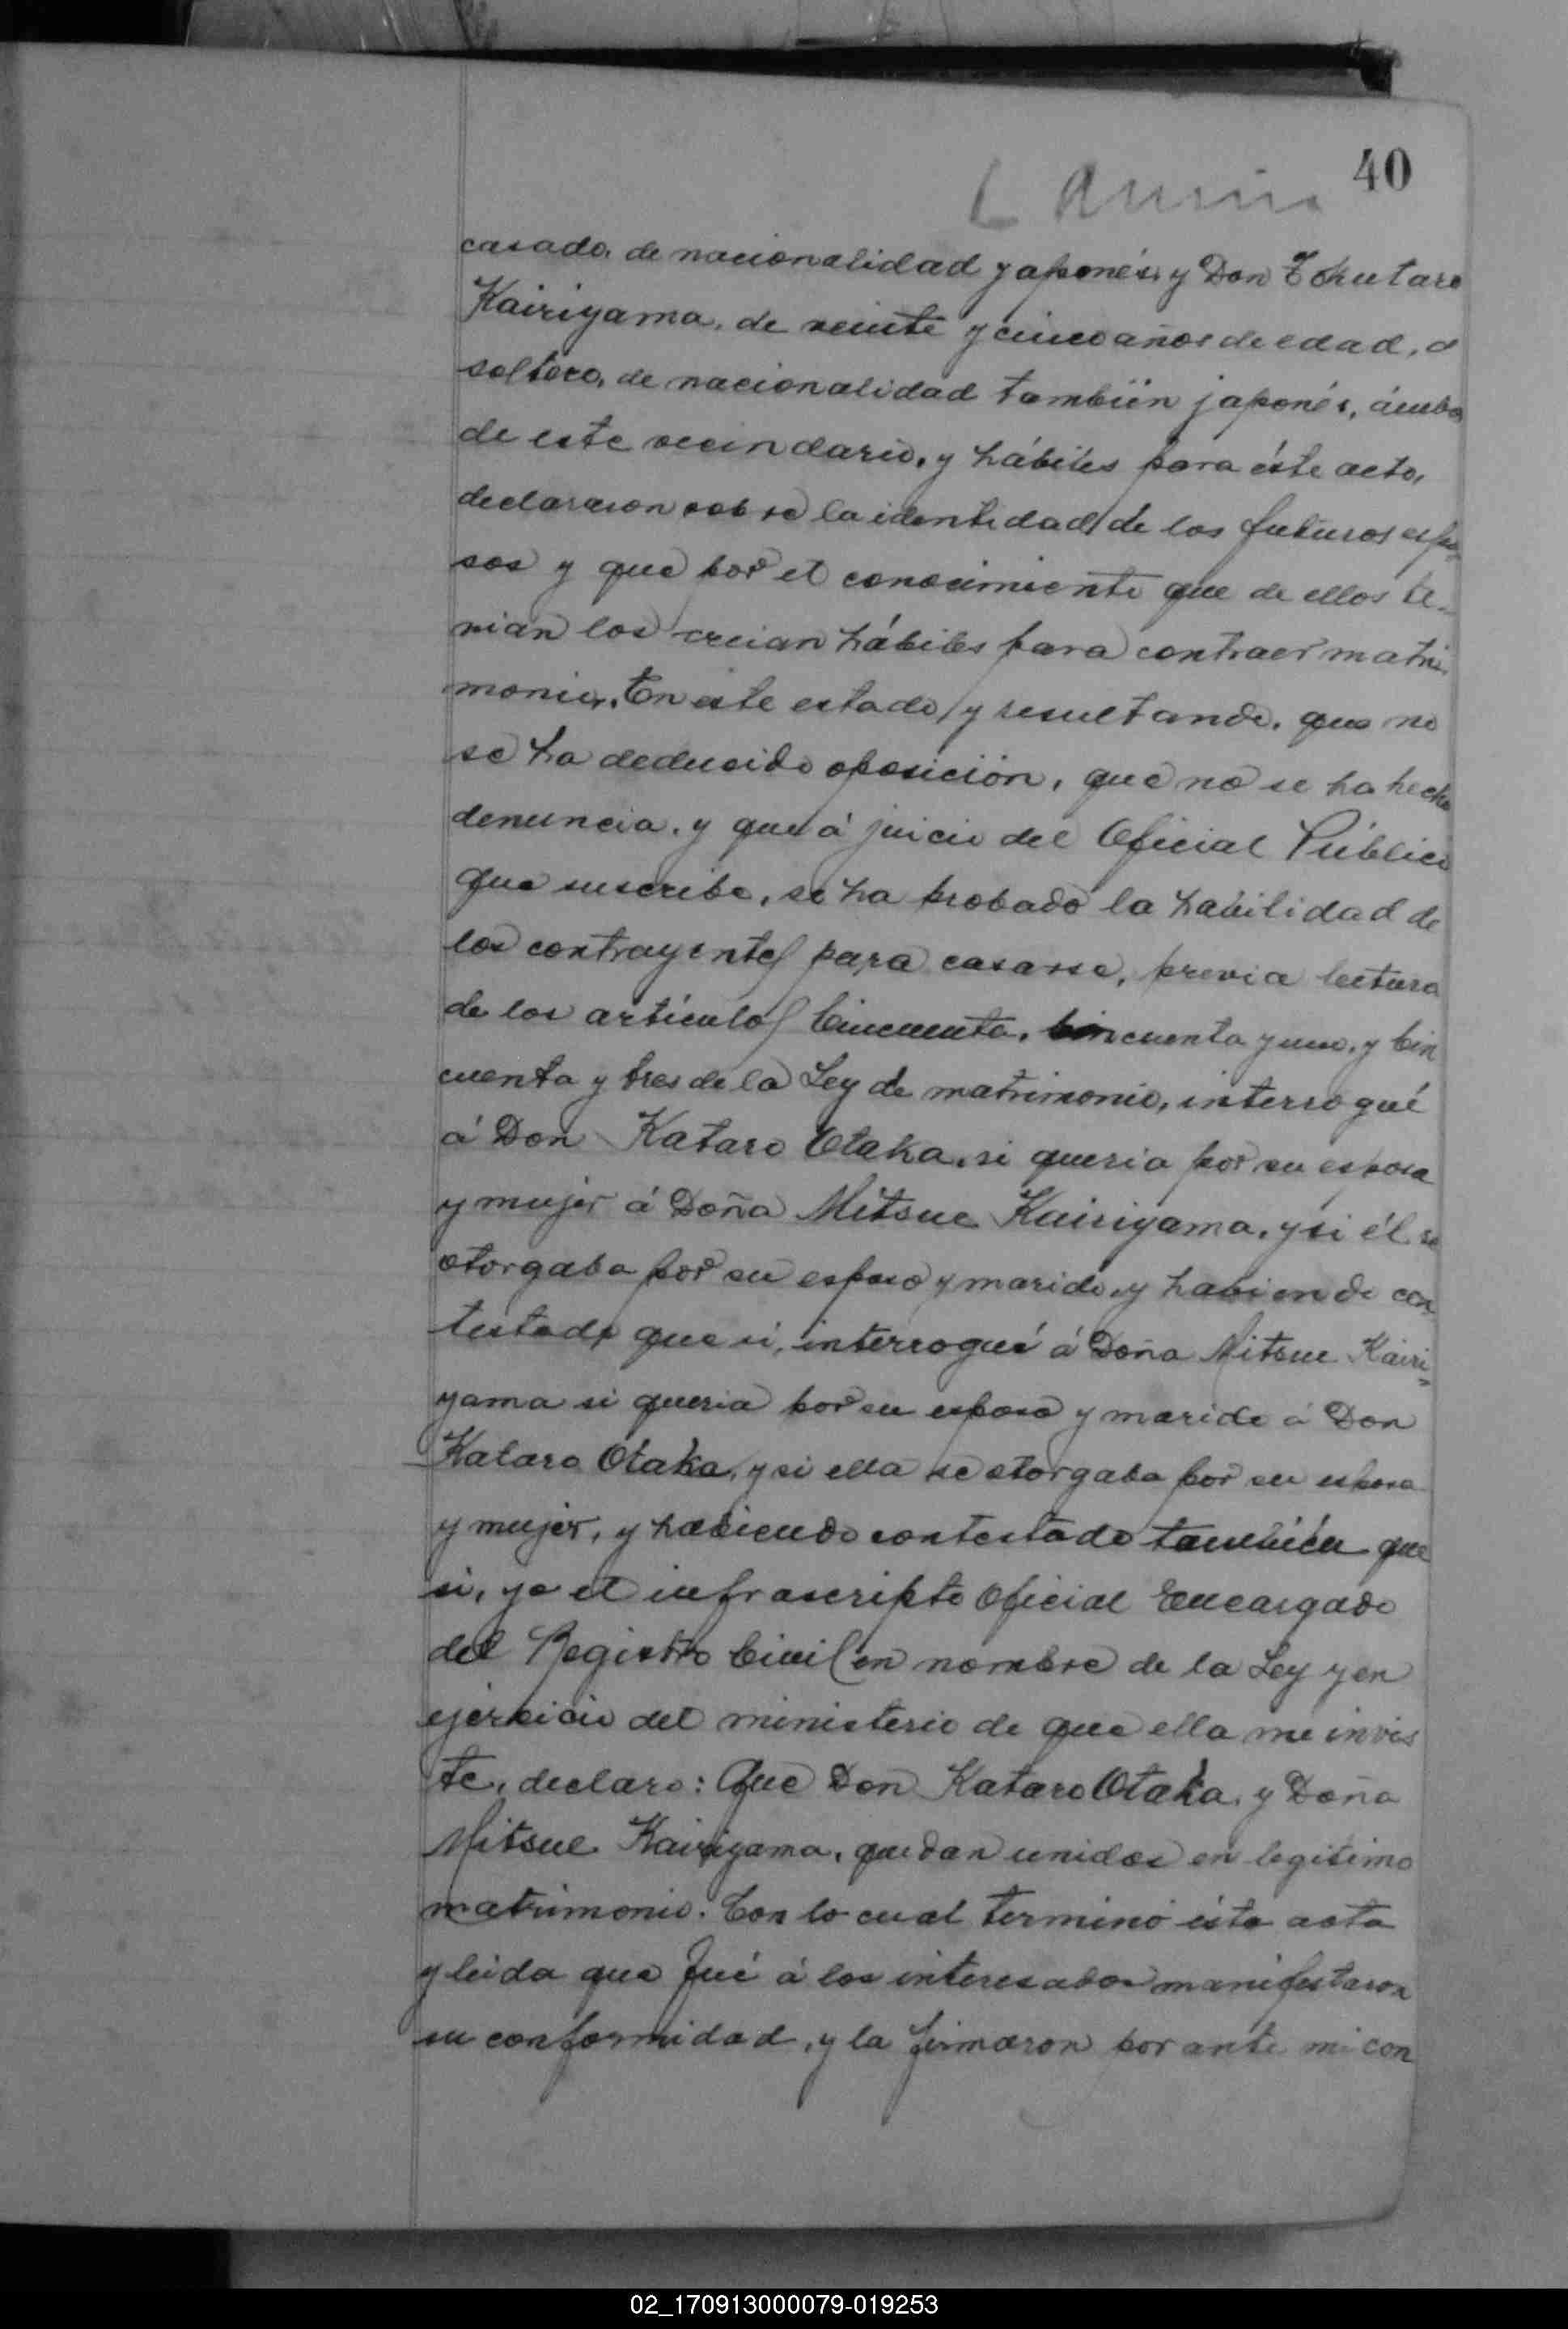 40
casado, de nacionalidad japonés, y Don Tokutaro
Kairiyama, de veinte y cinco años de edad,
soltero, de nacionalidad tambien japonés, ámbos
de este vecindario, y hábiles para éste acto,
declararon sobre la identidad de los futuros espo-
sos y que por el conocimiento que de ellos te-
nian los creian hábiles para contraer matri-
monio. En este estado y resultando, que no
se ha deducido oposición, que no se ha hecho
denuncia, y que á juicio del Oficial Público
que suscribe, se ha probado la habilidad de
los contrayentes para casarse, previa lectura
de los artículos Cincuenta, Cincuenta y uno, y Cin
cuenta y tres de la Ley de matrimonio, interrogué
á Don Kataro Otaka, si queria por su esposa
y mujer á Doña Mitsue Kairiyama, y si él se
otorgaba por su esposo y marido, y habiendo con
testado que si, interrogué á Doña Mitsue Kairi-
yama si queria por su esposo y marido á Don
Kataro Otaka, y si ella se otorgaba por su esposa
y mujer, y habiendo contestado también que
si, yo el infrascripto Oficial Encargado
del Registro Civil en nombre de la Ley y en
ejercicio del ministerio de que ella me invis
te, declaro: Que Don Kataro Otaka, y Doña
Mitsue Kairiyama, quedan unidos en legitimo
matrimonio. Con lo cual terminó ésta acta
y leida que fué á los interesados manifestaron
su conformidad, y la firmaron por ante mi con
02_170913000079-019253